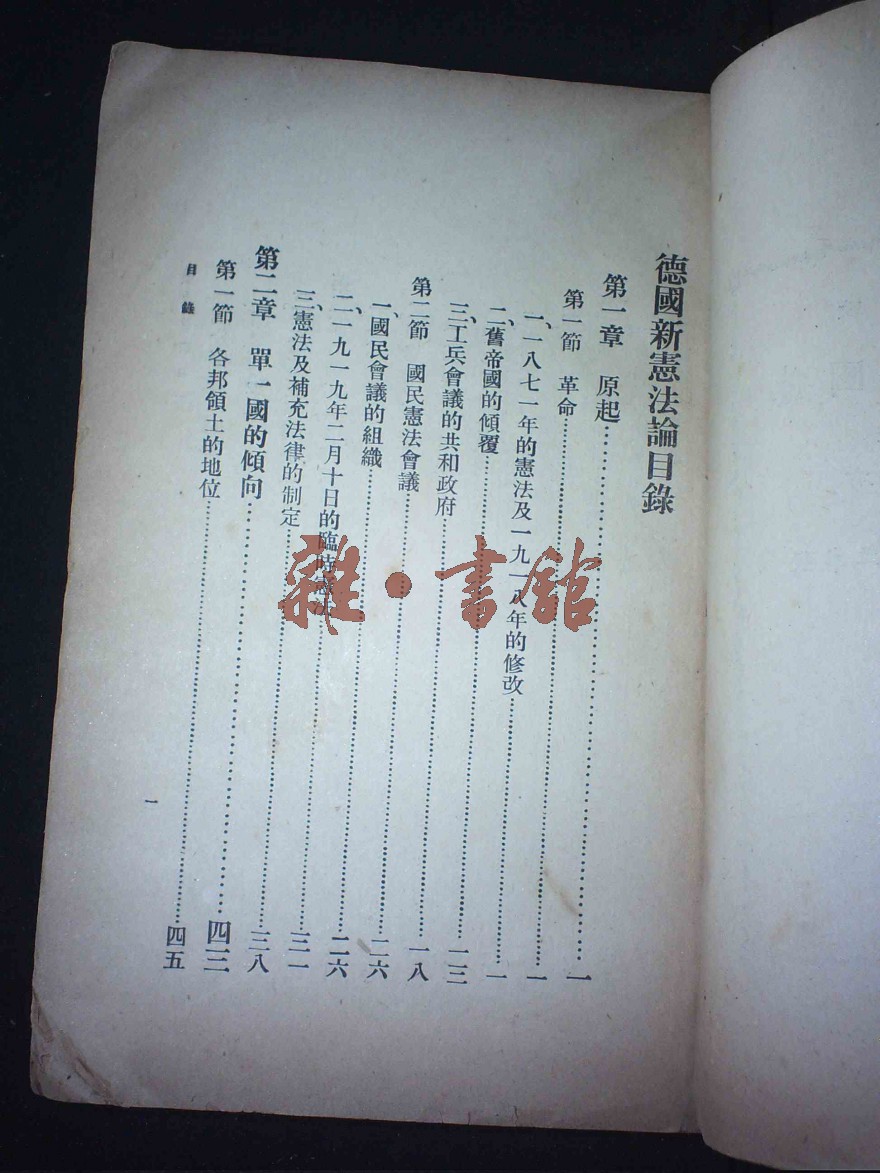 德國新憲法論目錄
第一章 原起……一
第一節 革命……一
一、一八七一年的憲法及一九一八年的修改……一
二、舊帝國的傾覆……一三
三、工兵會議的共和政府……一八
第二節 國民憲法會議……二六
一、國民會議的組織……二六
二、一九一九年二月十日的臨時憲法……三一
三、憲法及補充法律的制定……三八
第二章 單一國的傾向……四三
第一節 各邦領土的地位……四五
目錄
一
雜·書館